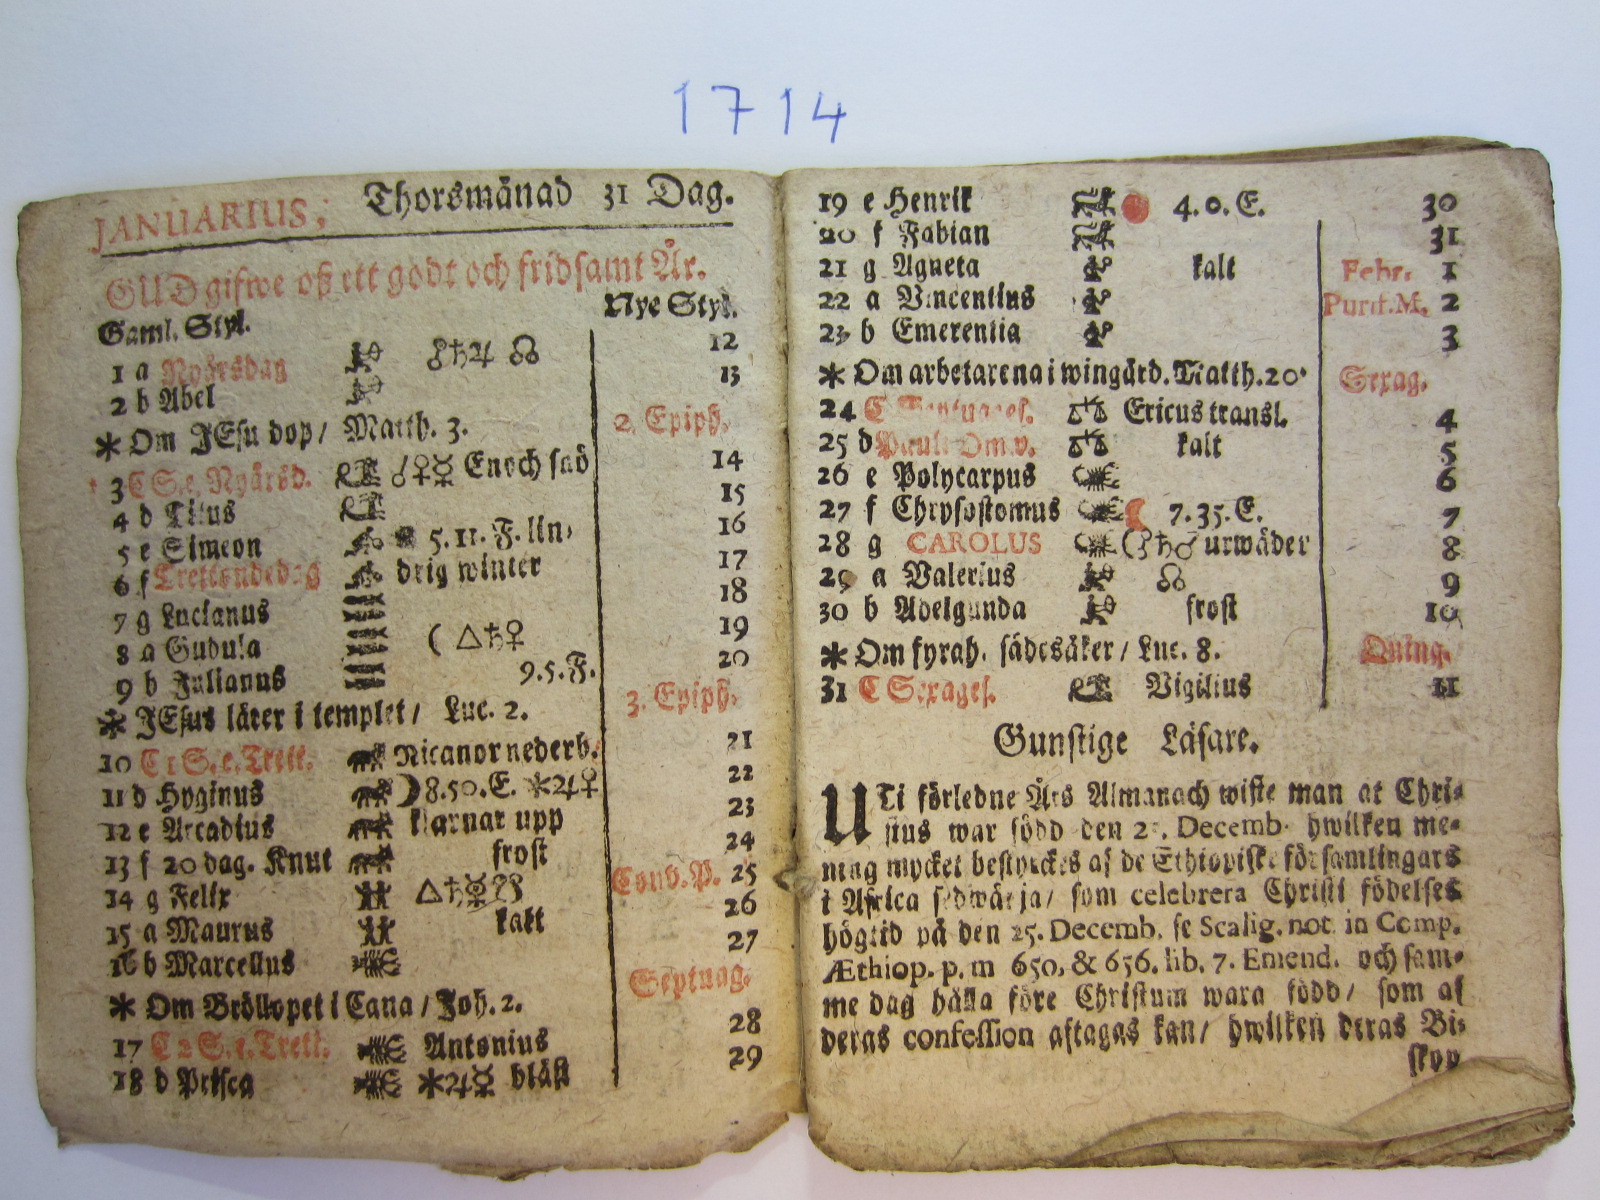 1714
JANUARIUS, Thorsmånad 31 Dag.
GUD gifwe oß ett godt och fridsamt År.
Gaml. Styl. Nye Styl.
1 a Nyårsdag ☍♄♃ ☊ 12
2 b Abel 13
* Om JEsu dop / Matth. 3. 2. Epiph.
3 C S. e. Nyårsd. ☌♀☿ Enoch snö 14
4 d Titus 15
5 e Simeon 5.11. F. lin- 16
6 f Trettondedag drig winter 17
7 g Lucianus 18
8 a Gudula ( △♄♀ 19
9 b Julianus 9.5.F. 20
* JEsus lärer i templet / Luc. 2. 3. Epiph.
10 C 1 S. e. Trett. Nicanor nederb. 21
11 d Hyginus ☽ 8.50.E. *♃♀ 22
12 e Arcadius klarnar upp 23
13 f 20 dag. Knut frost 24
14 g Felix △♄☿ ☋ Conv. P. 25
15 a Maurus kalt 26
16 b Marcellus 27
* Om Bröllopet i Cana / Joh. 2. Septuag.
17 C 2 S. e. Trett. Antonius 28
18 d Prisca *♃☿ blåst 29
19 e Henrik 4.0.E. 30
20 f Fabian 31
21 g Agneta kalt Febr. 1
22 a Vincentius Purif. M. 2
23 b Emerentia 3
* Om arbetarena i wingård. Matth. 20. Sexag.
24 C Septuages. Ericus transl. 4
25 d Pauli Omv. kalt 5
26 e Polycarpus 6
27 f Chrysostomus ☾ 7.35.E. 7
28 g CAROLUS (☍♄♂ urwäder 8
29 a Valerius ☊ 9
30 b Adelgunda frost 10
* Om fyrah. sädesåker / Luc. 8. Quinq.
31 C Sexages. Vigilius 11
Gunstige Läsare.
UTi förledne Års Almanach wiste man at Chri-
stus war född den 25. Decemb. hwilken me-
ning mycket bestyrckes af de Ethiopiske församlingars
i Africa sedwärja / som celebrera Christi födelses
högtid på den 25. Decemb. se Scalig. not. in Comp.
Æthiop. p. m 650. & 656. lib. 7. Emend. och sam-
me dag hålla före Christum wara född / som af
deras confession aftagas kan / hwilken deras Bi-
skop